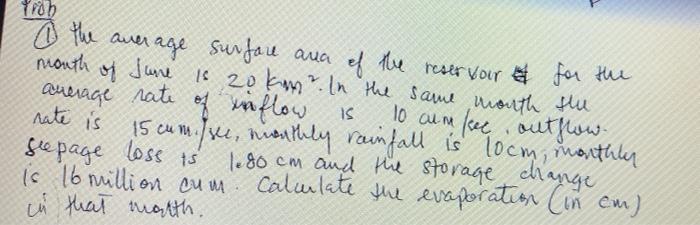 Prob
① the average surface area of the reservoir for the
month of June is 20 km². In the same month the
average rate of inflow is 10 cum/sec, outflow
rate is 15 cum./sec, monthly rainfall is 10cm, monthly
seepage loss is 1.80 cm and the storage change
is 16 million cum. Calculate the evaporation (in cm)
in that month.